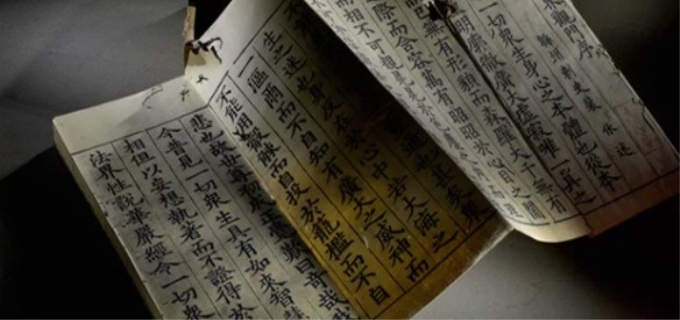 門序
一切衆生身心之本體也從本
明廓徹廣大虛寂唯一真之
無有形貌而森羅大千無有
際而含容萬有昭昭於心目之間
而相不可覩晃晃
生之迷也身反在於心中若大海之
一漚爾而不自知有廣大之威神而
不能用觫而自投於籠檻而不自
悲也故世尊歎曰奇哉我
今普見一切衆生具有如來智慧
相但以妄想執著而不證得於
法界性說華嚴經令一切衆